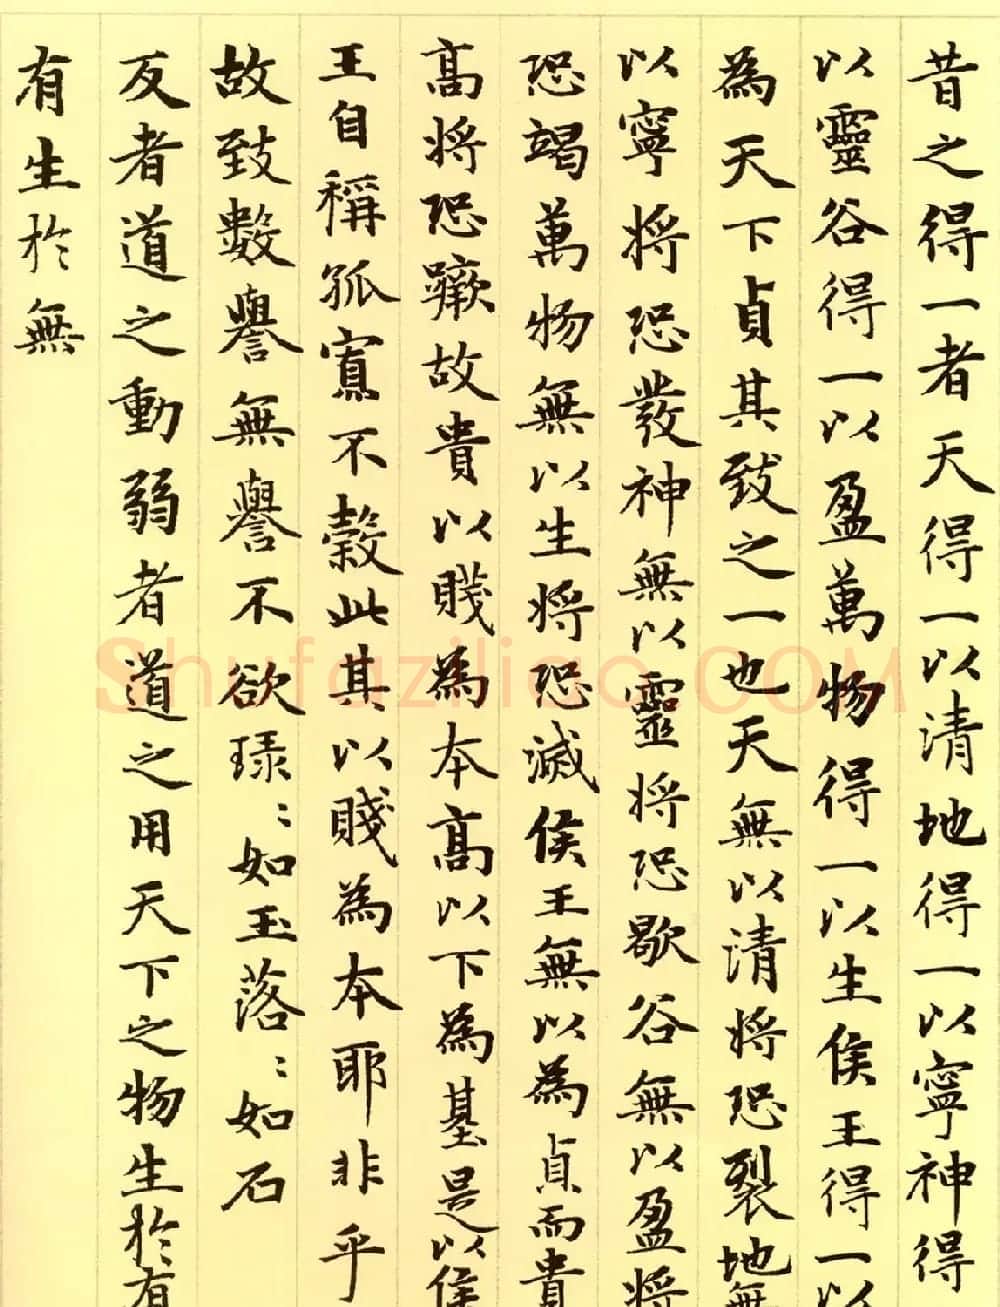 昔之得一者天得一以清地得一以寧神得
以靈谷得一以盈萬物得一以生侯王得一以
為天下貞其致之一也天無以清將恐裂地無
以寧將恐發神無以靈將恐歇谷無以盈將
恐竭萬物無以生將恐滅侯王無以為貞而貴
高將恐蹶故貴以賤為本高以下為基是以侯
王自稱孤寡不穀此其以賤為本耶非乎
故致數譽無譽不欲琭〻如玉落〻如石
反者道之動弱者道之用天下之物生於有
有生於無
Shufaziliao.COM